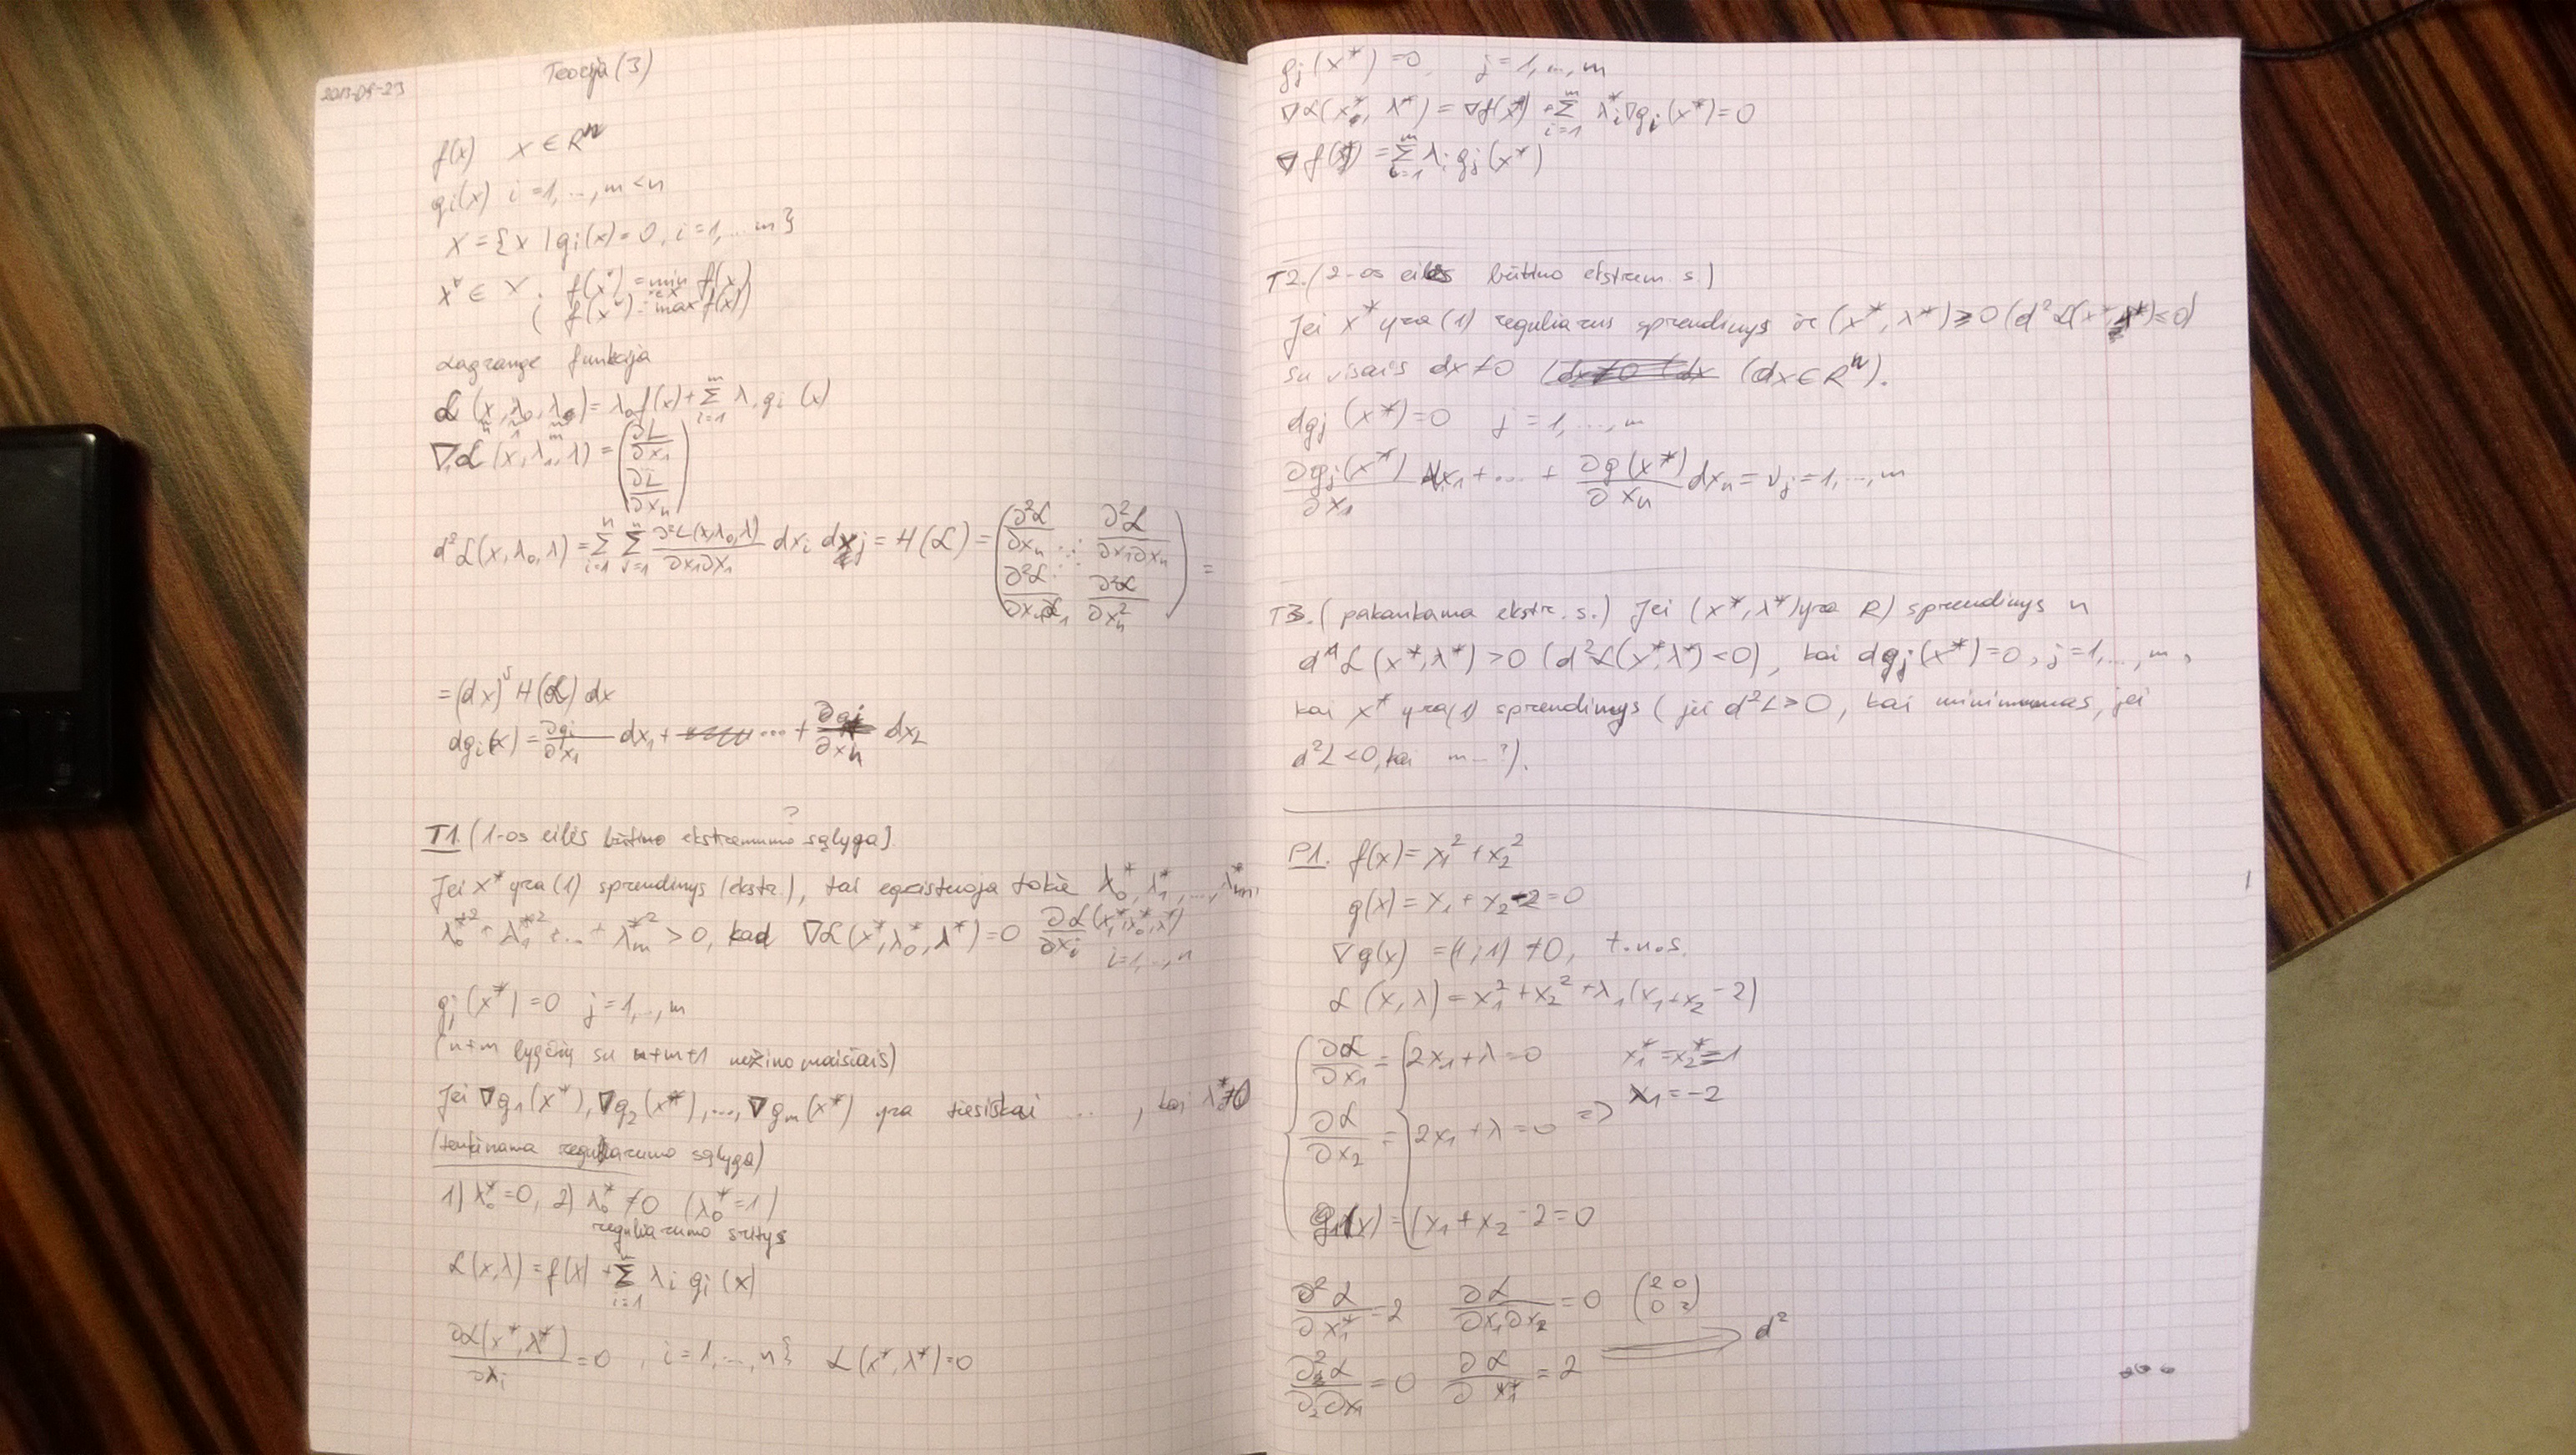 Teorija (3)
f(x) x ∈ Rⁿ
gi(x) i = 1, ..., m < n
X = {x | gi(x) = 0, i = 1, ... m}
x* ∈ X, f(x*) = min f(x)
( f(x*) = max f(x))
Lagrange funkcija
ℒ(x, λ₀, λ) = λ₀f(x) + Σ λi gi(x)
∇ℒ(x, λ, λ) = (∂L/∂x₁ ∂L/∂xn)
d²ℒ(x, λ₀, λ) = Σ Σ ∂²L(x,λ₀,λ)/∂x₁∂x₁ dxi dxj = H(ℒ) = (∂²ℒ/∂xn ⋯ ∂²ℒ/∂x₁∂xn ∂²ℒ/∂xn∂x₁ ∂²ℒ/∂xn²) =
= (dx)ᵀ H(ℒ) dx
dgi(x) = ∂gi/∂x₁ dx₁ + ... + ∂gi/∂xn dx₂
?
T1. (1-os eilės būtino ekstremumo sąlyga)
Jei x* yra (1) sprendinys (ekstr.), tai egzistuoja tokie λ₀*, λ₁*, ..., λm*,
λ₀*² + λ₁*² + ... + λm*² > 0, kad ∇ℒ(x*, λ₀*, λ*) = 0 ∂ℒ(x*, λ₀*, λ*)/∂xi i = 1, ..., n
gj(x*) = 0 j = 1, ..., m
(n+m lygčių su n+m+1 nežinomaisiais)
Jei ∇g₁(x*), ∇g₂(x*), ..., ∇gm(x*) yra tiesiškai ... , kai λ₀* ≠ 0
(tenkinama reguliarumo sąlyga)
1) λ₀* = 0, 2) λ₀* ≠ 0 (λ₀* = 1)
reguliarumo sritys
ℒ(x, λ) = f(x) + Σ λi gi(x)
∂ℒ(x*, λ*)/∂λi = 0, i = 1, ..., n} ℒ(x*, λ*) = 0
gj(x*) = 0, j = 1, ..., m
∇ℒ(x*, λ*) = ∇f(x*) + Σ λi* ∇gi(x*) = 0
∇f(x*) = Σ λi gj(x*)
T2. (2-os eilės būtino ekstrem. s.)
Jei x* yra (1) reguliarus sprendinys ir (x*, λ*) ≥ 0 (d²ℒ(x*, λ*) ≤ 0)
su visais dx ≠ 0 (dx ∈ Rⁿ).
dgj(x*) = 0 j = 1, ..., m
∂gj(x*)/∂x₁ dx₁ + ... + ∂g(x*)/∂xn dxn = 0 j = 1, ..., m
T3. (pakankama ekstr. s.) Jei (x*, λ*) yra R) sprendinys n
d²ℒ(x*, λ*) > 0 (d²ℒ(x*, λ*) < 0), kai dgj(x*) = 0, j = 1, ..., m,
kai x* yra (1) sprendinys (jei d²L > 0, kai minimumas, jei
d²L < 0, kai m - ?).
P1. f(x) = x₁² + x₂²
g(x) = x₁ + x₂ - 2 = 0
∇g(x) = (1; 1) ≠ 0, t.n.s.
ℒ(x, λ) = x₁² + x₂² + λ₁(x₁ + x₂ - 2)
∂ℒ/∂x₁ = {2x₁ + λ = 0 x₁* = x₂* = 1
∂ℒ/∂x₂ = {2x₁ + λ = 0 => λ₁ = -2
g₁(x) = {x₁ + x₂ - 2 = 0
∂²ℒ/∂x₁² = 2 ∂ℒ/∂x₁∂x₂ = 0 (2 0 0 2)
∂²ℒ/∂₂∂x₁ = 0 ∂ℒ/∂x₁² = 2 ⟹ d²